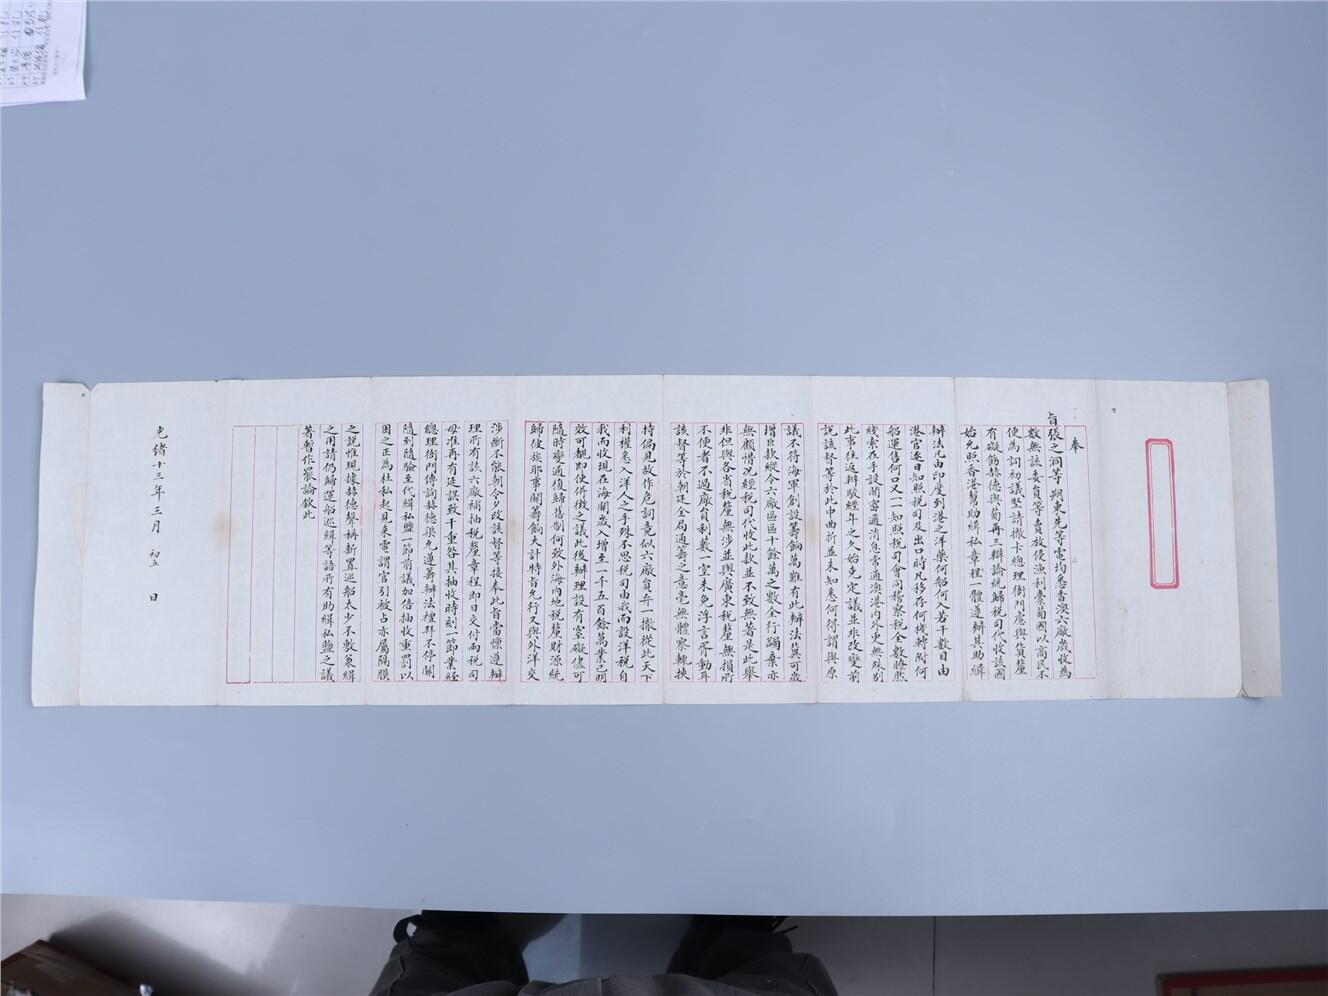 奉
旨張之洞等 朔東先等電均悉香澳六廠歲收為
數無該委員等賣放侵漁利專葡國以商民不
便為詞初議堅請撤卡總理衙門慮與貨釐
有礙飭赫德與葡再三辯論統歸稅司代收該國
始允照香港幫助緝私章程一體遵辦其助緝
辦法凡由印度到港之洋藥何船何入若干數目由
港官逐日知照稅司及出口時凡移存何棧轉附何
船運售何口又一一知照稅司會同稽察稅全數瞭然
綫索在手設關密通消息常通澳港內外更無殊別
此事往返辯駁經年之久始克定議並非改變前
說該督等於此中曲折並未知悉何得謂與原
議不符海軍創設籌餉萬難有此辦法冀可歲
增巨款縱令六廠區區十餘萬之數全行蠲棄亦
無顧惜况經稅司代收此款並不致無著是此舉
非但與各省稅釐無涉並與廣東稅釐無損所
不便者不過廠員利藪一空未免浮言胥動耳
該督等於朝廷全局通籌之意毫無體察輒挾
持偏見故作危詞竟似六廠員弁一撤從此天下
利權悉入洋人之手殊不思稅司由我而設洋稅自
我而收現在海關歲入增至一千五百餘萬業已明
效可觀即使併徵之議此後辦理設有窒礙儘可
隨時變通復歸舊制何致外海內地稅釐財源統
歸彼族耶事關籌餉大計特旨允行又與外洋交
涉斷不能朝令夕改該督等接奉此旨當懍遵辦
理所有該六廠補抽稅釐章程即日交付兩稅司
毋准再有延誤致干重咎其抽收時刻一節業經
總理衙門傳詢赫德渠允遵舊辦法禮拜不停關
隨到隨驗至代緝私鹽一節前議加倍抽收重罰以
困之正為杜私起見來電謂官引被占亦屬隔膜
之說惟現據赫德聲稱新置巡船太少不敷兼緝
之用請仍歸運船巡緝等語所有助緝私鹽之議
著暫作罷論欽此
光緒十三年三月 初五 日